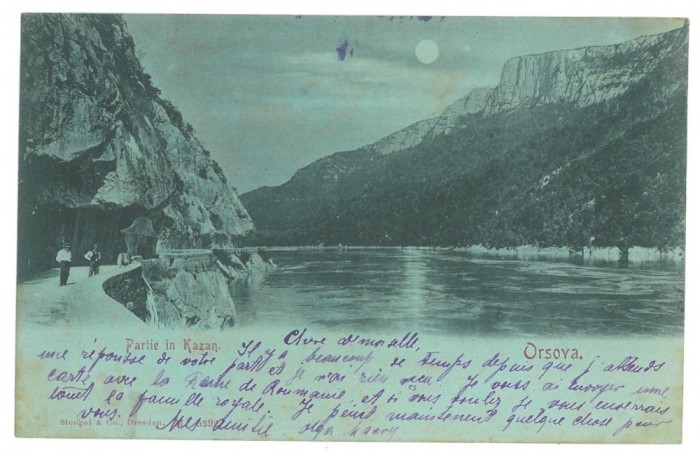 Partie in Kazan.
Orsova.
Chère demoiselle,
Il y a beaucoup de temps depuis que j'attends
une réponse de votre part et je n'ai rien reçu. Je vous ai envoyer une
carte avec la Reine de Roumanie, et si vous voulez je vous enverrais
tout la famille royale. Je peux maintenant quelque chose pour
vous. Mes amitié Olga
Stengel & Co., Dresden.